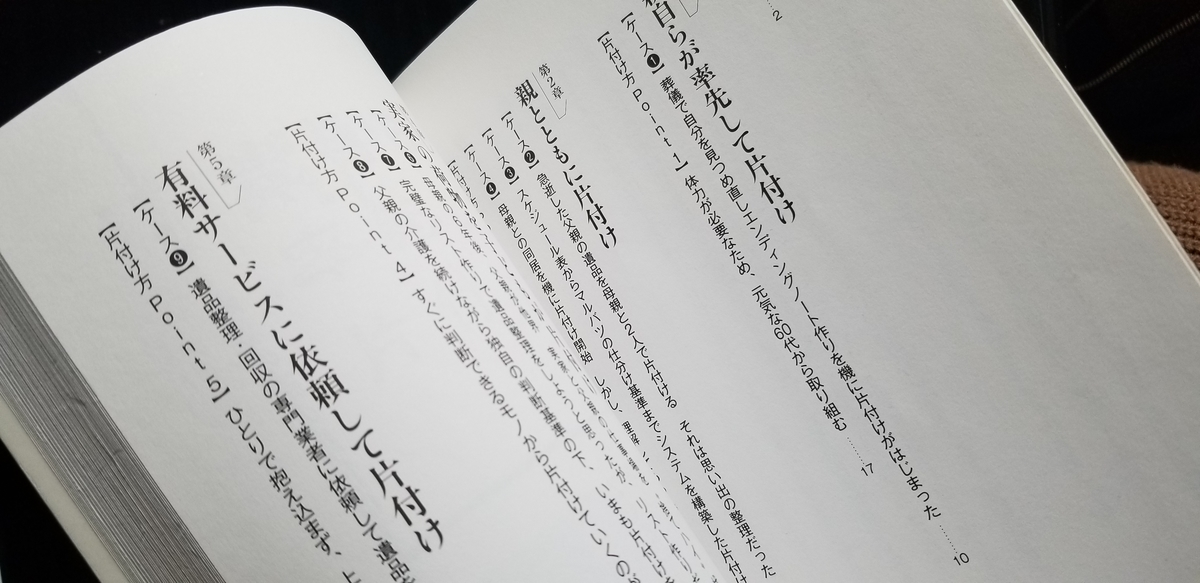 2
自らが率先して片付け
【ケース❶】葬儀で自分を見つめ直しエンディングノート作りを機に片付けがはじまった 10
【片付け方Point 1】体力が必要なため、元気な60代から取り組む 17
第2章
親とともに片付け
【ケース❷】急逝した父親の遺品を母親と2人で片付ける それは思い出の整理だった
【ケース❸】スケジュール表からマルバツの仕分け基準までシステムを構築した片付け
【ケース❹】母親との同居を機に片付け開始 しかし、
【片付け
【ケース❻】母親の 6年後、父親が他界
【ケース❼】完璧なリスト作りで遺品整理をしようと思ったが、リスト作り
【ケース❽】父親の介護を続けながら独自の判断基準の下、いまも片付け
【片付け方Point 4】すぐに判断できるモノから片付けていくの
第5章
有料サービスに依頼して片付け
【ケース❾】遺品整理・回収の専門業者に依頼して遺品
【片付け方Point 5】ひとりで抱え込まず、上